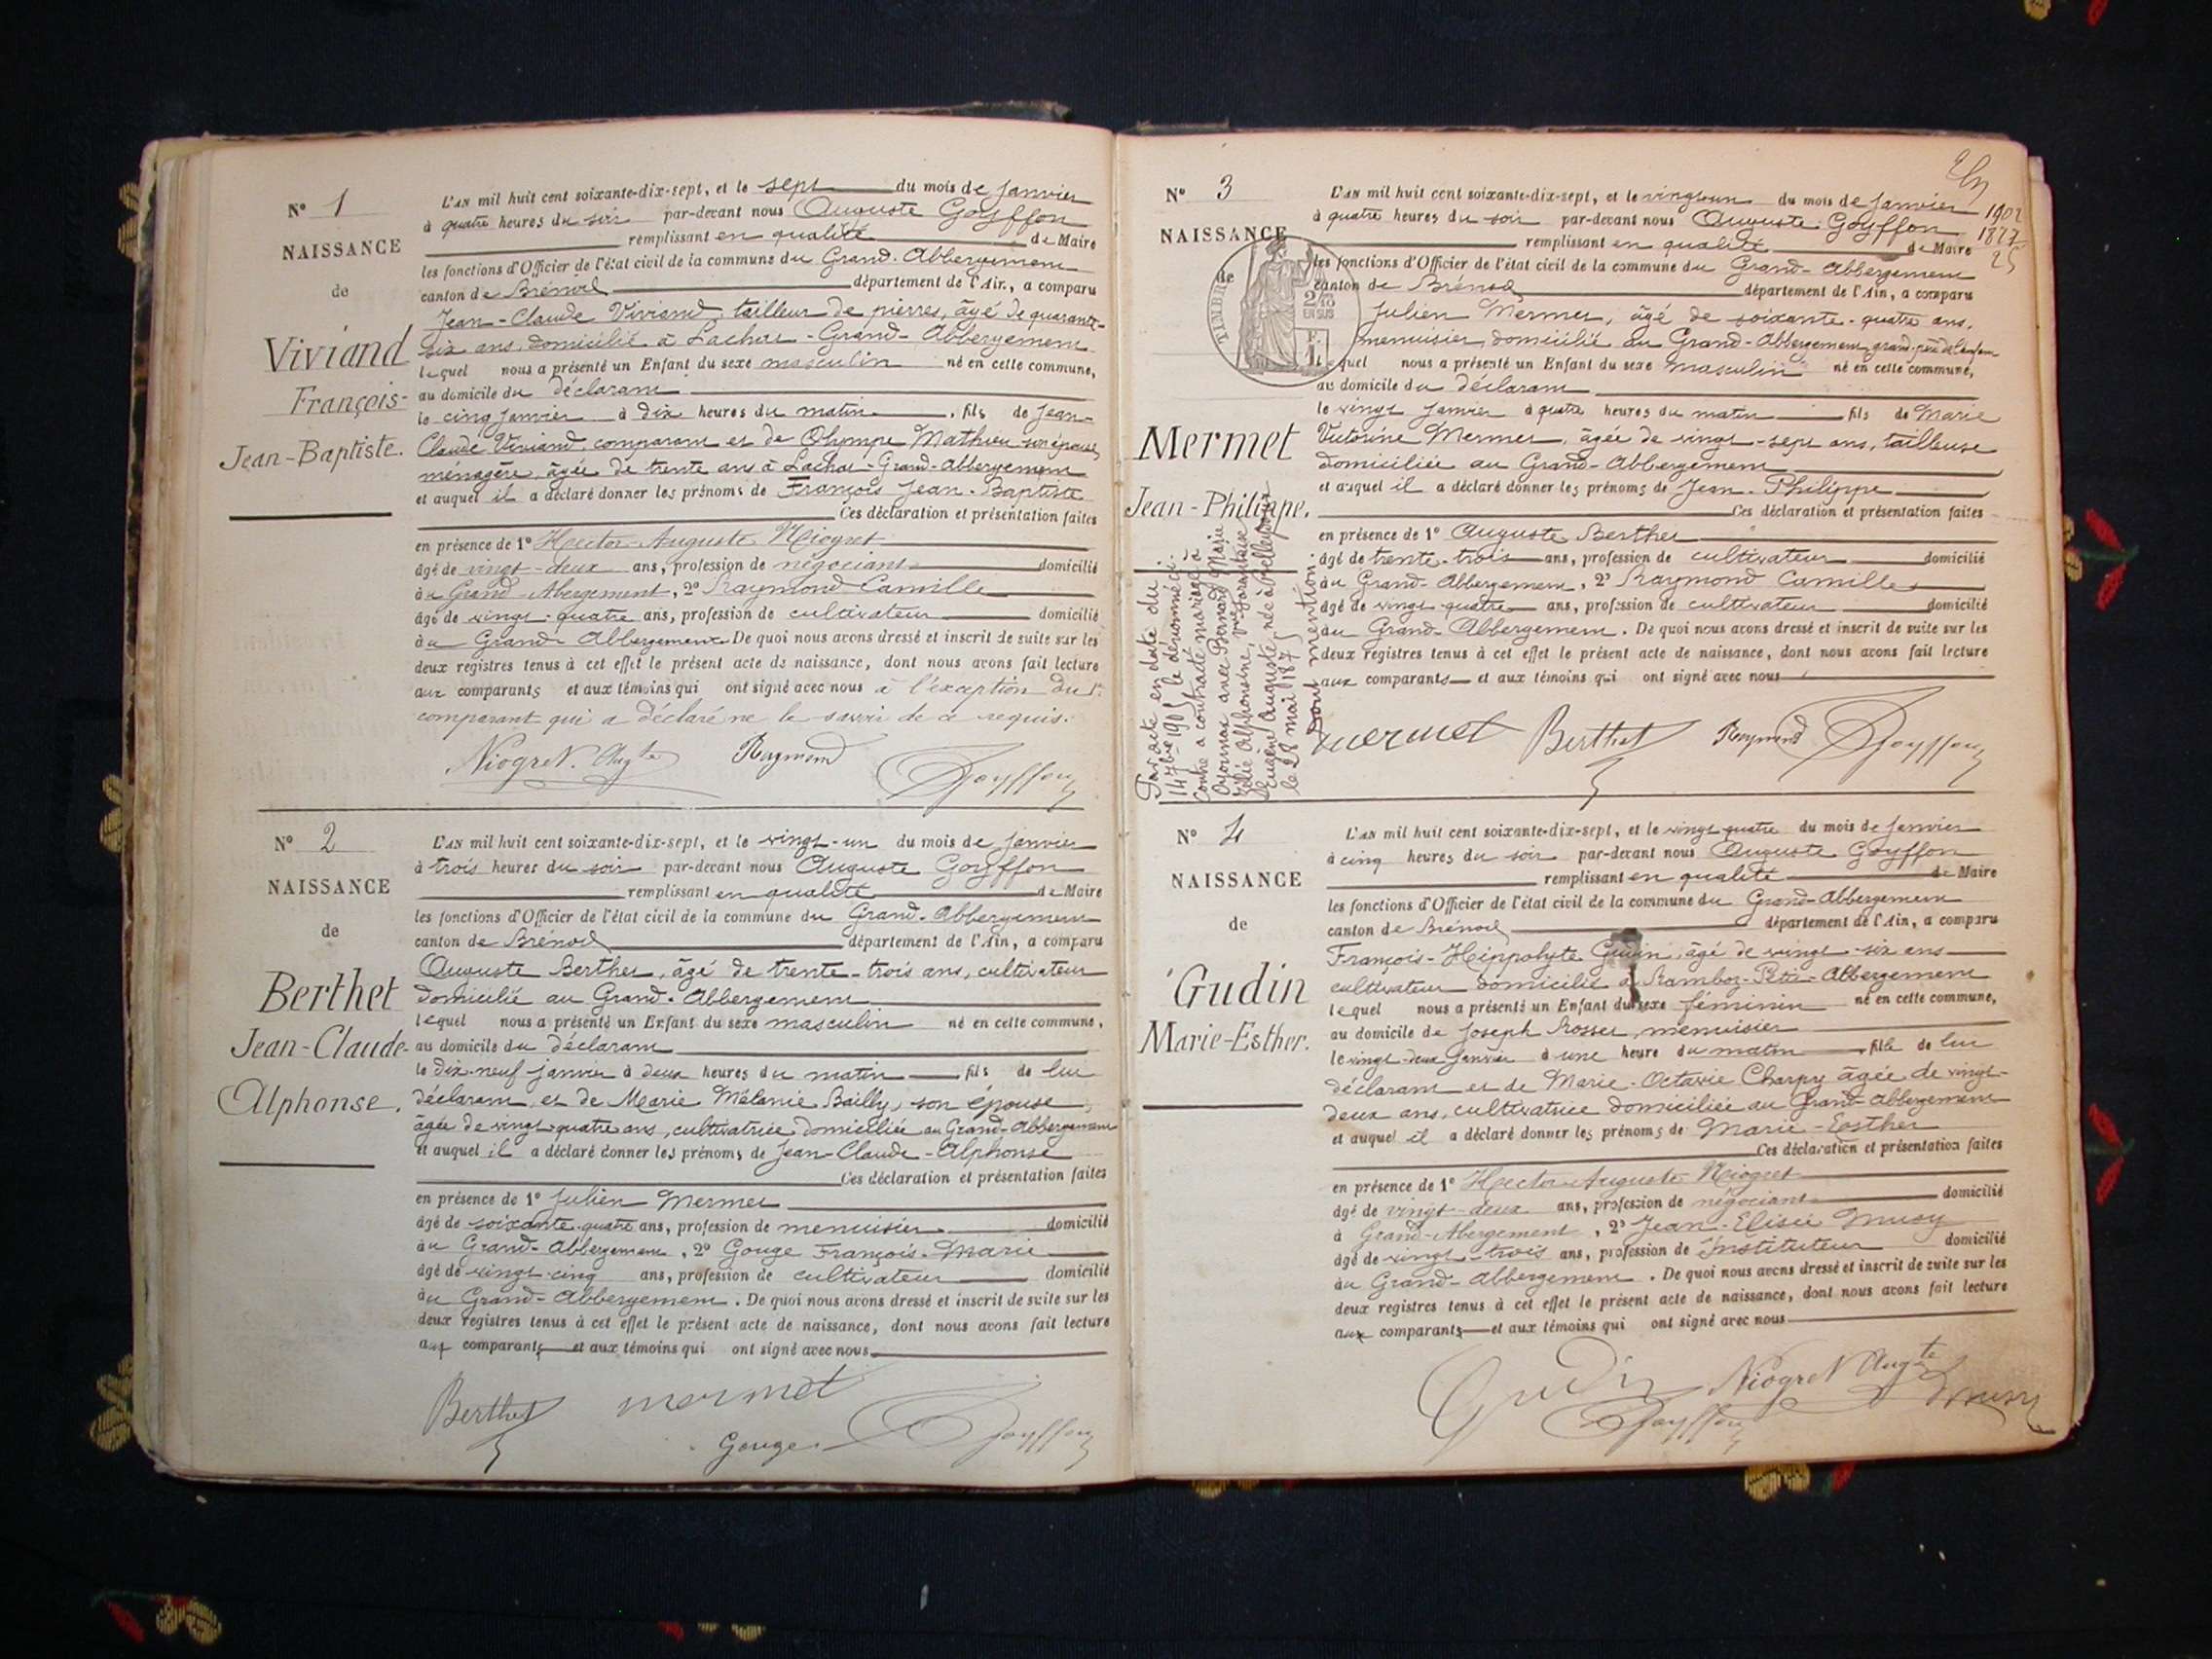 N° 1
NAISSANCE
de
Viviand
François-
Jean-Baptiste.
L'AN mil huit cent soixante-dix-sept, et le sept du mois de Janvier
à quatre heures du soir par-devant nous Auguste Goyffon
remplissant en qualité de Maire
les fonctions d'Officier de l'état civil de la commune du Grand-Abbergement
canton de Brénod département de l'Ain, a comparu
Jean-Claude Viviand, tailleur de pierres, âgé de quarante-
six ans, domicilié à Lachat-Grand-Abbergement
lequel nous a présenté un Enfant du sexe masculin né en cette commune,
au domicile du déclarant
le cinq Janvier à dix heures du matin, fils de Jean-
Claude Viviand, comparant et de Olympe Mathieu son épouse,
ménagère, âgée de trente ans à Lachat-Grand-Abbergement
et auquel il a déclaré donner les prénoms de François Jean-Baptiste
Ces déclaration et présentation faites
en présence de 1° Hector-Auguste Niogret
âgé de vingt-deux ans, profession de négociant domicilié
au Grand-Abergement, 2° Raymond Camille
âgé de vingt-quatre ans, profession de cultivateur domicilié
au Grand Abbergement. De quoi nous avons dressé et inscrit de suite sur les
deux registres tenus à cet effet le présent acte de naissance, dont nous avons fait lecture
aux comparants et aux témoins qui ont signé avec nous à l'exception du 1er
comparant qui a déclaré ne le savoir de ce requis.
Niogret Augte Raymond Goyffon
N° 2
NAISSANCE
de
Berthet
Jean-Claude-
Alphonse.
L'AN mil huit cent soixante-dix-sept, et le vingt-un du mois de Janvier
à trois heures du soir par-devant nous Auguste Goyffon
remplissant en qualité de Maire
les fonctions d'Officier de l'état civil de la commune du Grand-Abbergement
canton de Brénod département de l'Ain, a comparu
Auguste Berthet, âgé de trente-trois ans, cultivateur
domicilié au Grand-Abbergement
lequel nous a présenté un Enfant du sexe masculin né en cette commune,
au domicile du déclarant
le dix-neuf Janvier à deux heures du matin, fils de lui
déclarant, et de Marie Mélanie Bailly, son épouse,
âgée de vingt-quatre ans, cultivatrice domiciliée au Grand-Abbergement
et auquel il a déclaré donner les prénoms de Jean-Claude-Alphonse
Ces déclaration et présentation faites
en présence de 1° Julien Mermet
âgé de soixante-quatre ans, profession de menuisier domicilié
au Grand-Abbergement, 2° Gouge François-Marie
âgé de vingt-cinq ans, profession de cultivateur domicilié
au Grand-Abbergement. De quoi nous avons dressé et inscrit de suite sur les
deux registres tenus à cet effet le présent acte de naissance, dont nous avons fait lecture
aux comparants et aux témoins qui ont signé avec nous
Berthet mermet
Gouge Goyffon
1902
1877
25
N° 3
NAISSANCE
de
TIMBRE
2/10
EN SUS
Mermet
Jean-Philippe.
L'AN mil huit cent soixante-dix-sept, et le vingt-un du mois de Janvier
à quatre heures du soir par-devant nous Auguste Goyffon
remplissant en qualité de Maire
les fonctions d'Officier de l'état civil de la commune du Grand-Abbergement
canton de Brénod département de l'Ain, a comparu
Julien Mermet, âgé de soixante-quatre ans,
menuisier, domicilié au Grand-Abbergement, grand-père de l'enfant
lequel nous a présenté un Enfant du sexe masculin né en cette commune,
au domicile du déclarant
le vingt Janvier à quatre heures du matin fils de Marie
Victorine Mermet, âgée de vingt-sept ans, tailleuse
domiciliée au Grand-Abbergement
et auquel il a déclaré donner les prénoms de Jean-Philippe
Ces déclaration et présentation faites
en présence de 1° Auguste Berthet
âgé de trente-trois ans, profession de cultivateur domicilié
au Grand-Abbergement, 2° Raymond Camille
âgé de vingt-quatre ans, profession de cultivateur domicilié
au Grand-Abbergement. De quoi nous avons dressé et inscrit de suite sur les
deux registres tenus à cet effet le présent acte de naissance, dont nous avons fait lecture
aux comparants et aux témoins qui ont signé avec nous
mermet Berthet Raymond Goyffon
Par acte en date du
14 7bre 1905 le dénommé ci-
contre a contracté mariage à
Oyonnax avec Bernard Marie
Zélie Alphonsine,
le 28 mai 187
Dont mention.
N° 4
NAISSANCE
de
Gudin
Marie-Esther.
L'AN mil huit cent soixante-dix-sept, et le vingt-quatre du mois de Janvier
à cinq heures du soir par-devant nous Auguste Goyffon
remplissant en qualité de Maire
les fonctions d'Officier de l'état civil de la commune du Grand-Abbergement
canton de Brénod département de l'Ain, a comparu
François-Hippolyte Gudin, âgé de vingt-six ans
cultivateur domicilié à Ramboz-Petit-Abbergement
lequel nous a présenté un Enfant du sexe féminin né en cette commune,
au domicile de Joseph Rosset, menuisier
le vingt-deux Janvier à une heure du matin, fille de lui
déclarant et de Marie-Octavie Charpy âgée de vingt-
deux ans, cultivatrice domiciliée au Grand-Abbergement
et auquel il a déclaré donner les prénoms de Marie-Esther
Ces déclaration et présentation faites
en présence de 1° Hector-Auguste Niogret
âgé de vingt-deux ans, profession de négociant domicilié
à Grand-Abergement, 2° Jean-Elisée Musy
âgé de vingt-trois ans, profession de Instituteur domicilié
au Grand-Abbergement. De quoi nous avons dressé et inscrit de suite sur les
deux registres tenus à cet effet le présent acte de naissance, dont nous avons fait lecture
aux comparants et aux témoins qui ont signé avec nous
Gudin Niogret Augte Musy
Goyffon